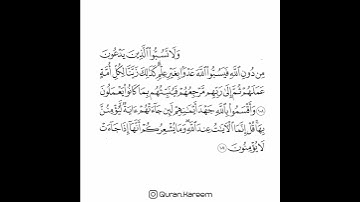 وَلَا تَسُبُّوا۟ ٱلَّذِينَ يَدْعُونَ
مِن دُونِ ٱللَّهِ فَيَسُبُّوا۟ ٱللَّهَ عَدْوًۢا بِغَيْرِ عِلْمٍ ۗ كَذَٰلِكَ زَيَّنَّا لِكُلِّ أُمَّةٍ
عَمَلَهُمْ ثُمَّ إِلَىٰ رَبِّهِم مَّرْجِعُهُمْ فَيُنَبِّئُهُم بِمَا كَانُوا۟ يَعْمَلُونَ
١٠٨ وَأَقْسَمُوا۟ بِٱللَّهِ جَهْدَ أَيْمَٰنِهِمْ لَئِن جَآءَتْهُمْ ءَايَةٌ لَّيُؤْمِنُنَّ
بِهَا ۚ قُلْ إِنَّمَا ٱلْءَايَٰتُ عِندَ ٱللَّهِ ۖ وَمَا يُشْعِرُكُمْ أَنَّهَآ إِذَا جَآءَتْ
لَا يُؤْمِنُونَ ١٠٩
Quran.Kareem